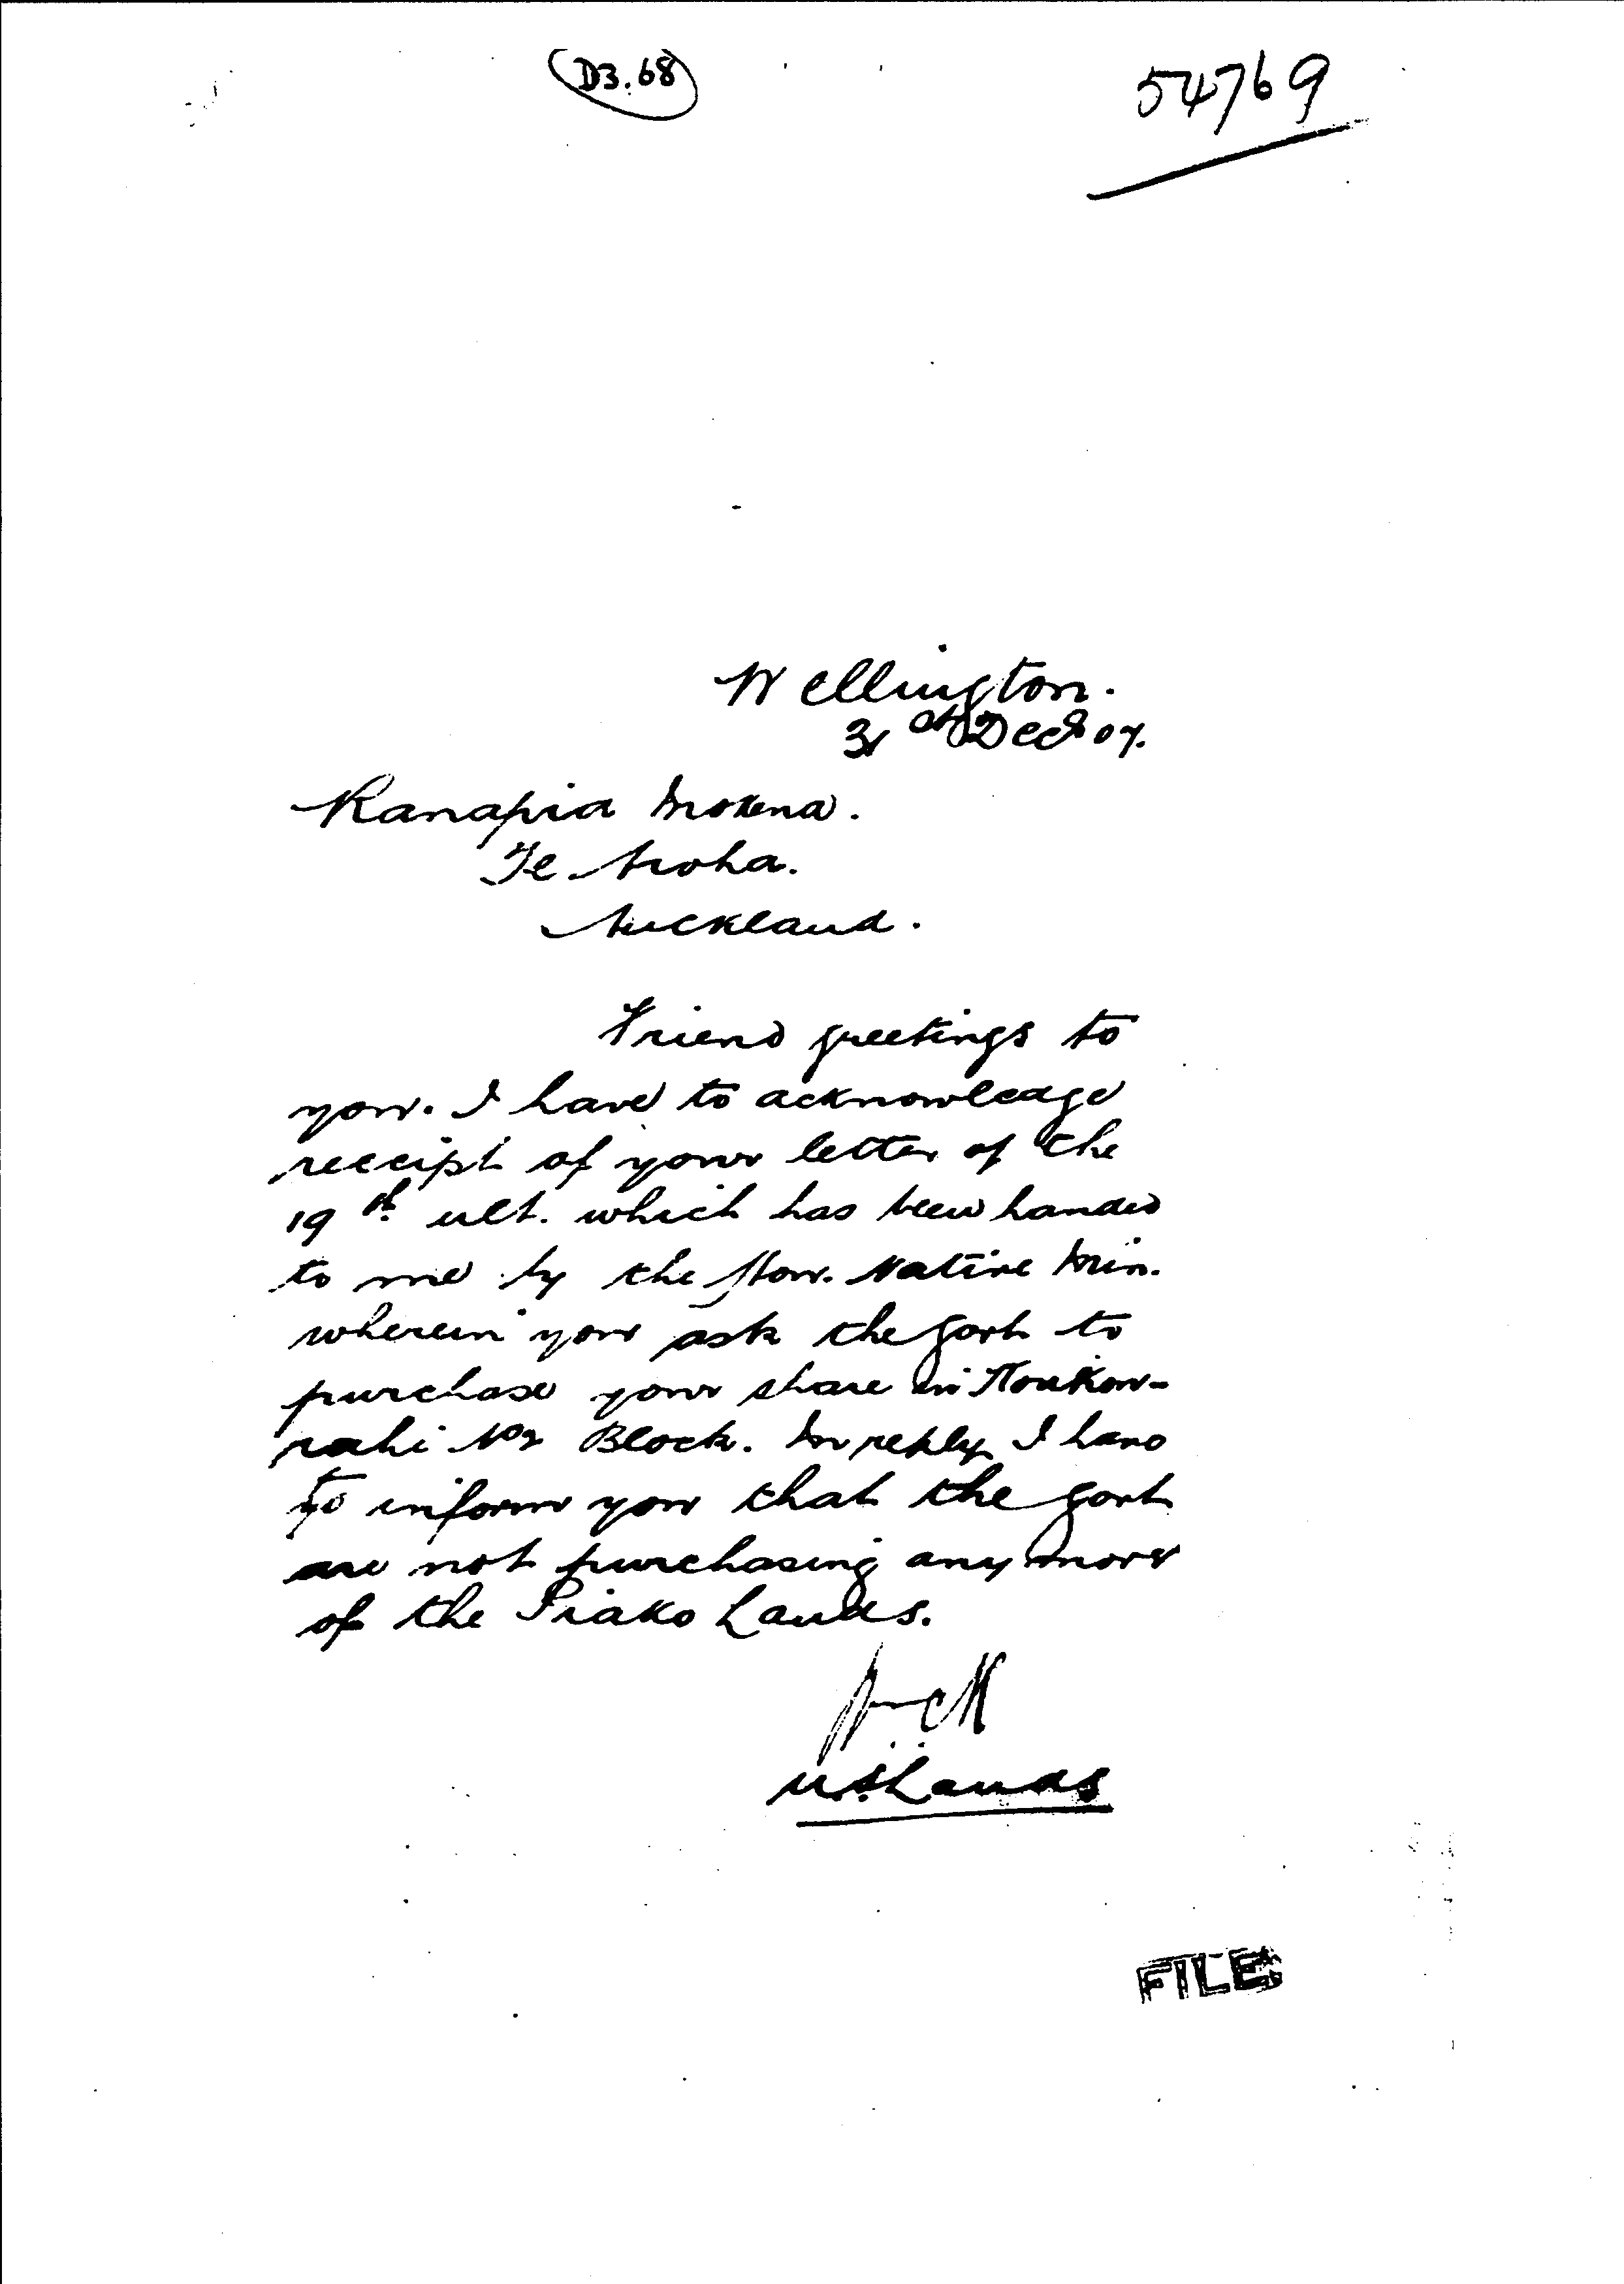 D3.68
54769
Wellington.
31st Dec 07.
Ranapia Mokena.
Te Aroha.
Auckland.
Friend greetings to
you. I have to acknowledge
receipt of your letter of the
19th ult. which has been handed
to me by the Hon. Native Min.
wherein you ask the Govt to
purchase your share in Koukou-
rahi No 2 Block. In reply I have
to inform you that the Govt
are not purchasing any more
of the Piako Lands.
U.S. Lands
FILE